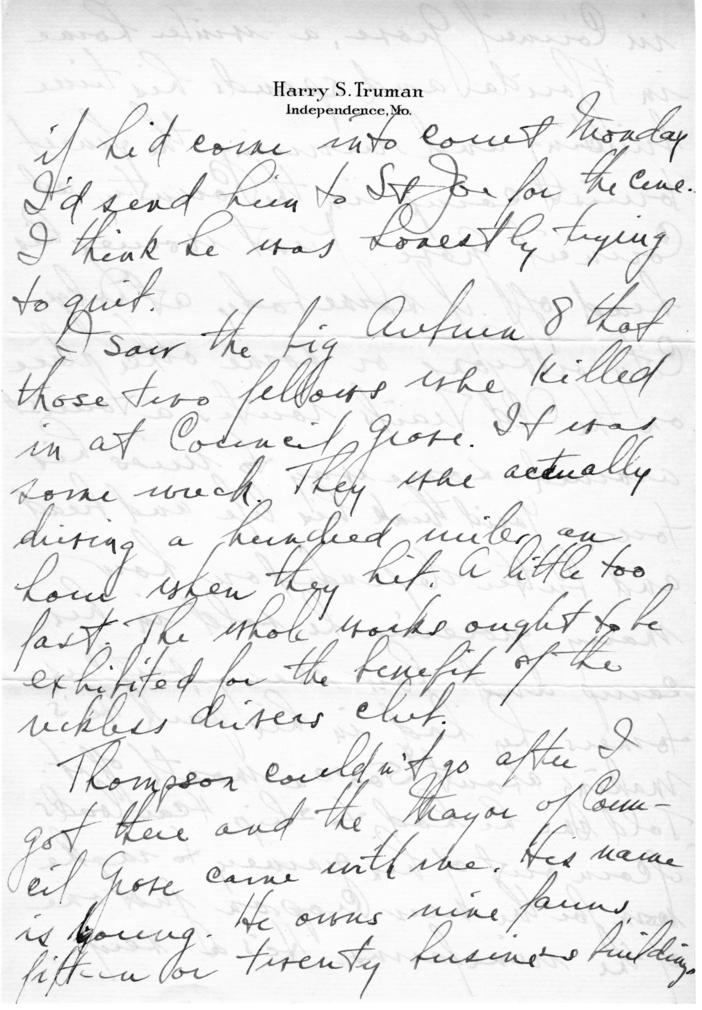 Harry S. Truman
Independence, Mo.
if he'd come into court Monday
I'd send him to St Joe for the cure.
I think he was honestly trying
to quit.
I saw the big Auburn 8 that
those two fellows were killed
in at Council Grove. It was
some wreck. They were actually
driving a hundred miles an
hour when they hit. A little too
fast. The whole works ought to be
exhibited for the benefit of the
reckless drivers club.
Thompson couldn't go after I
got there and the Mayor of Coun-
cil Grove came with me. His name
is Young. He owns nine farms,
fifteen or twenty business buildings